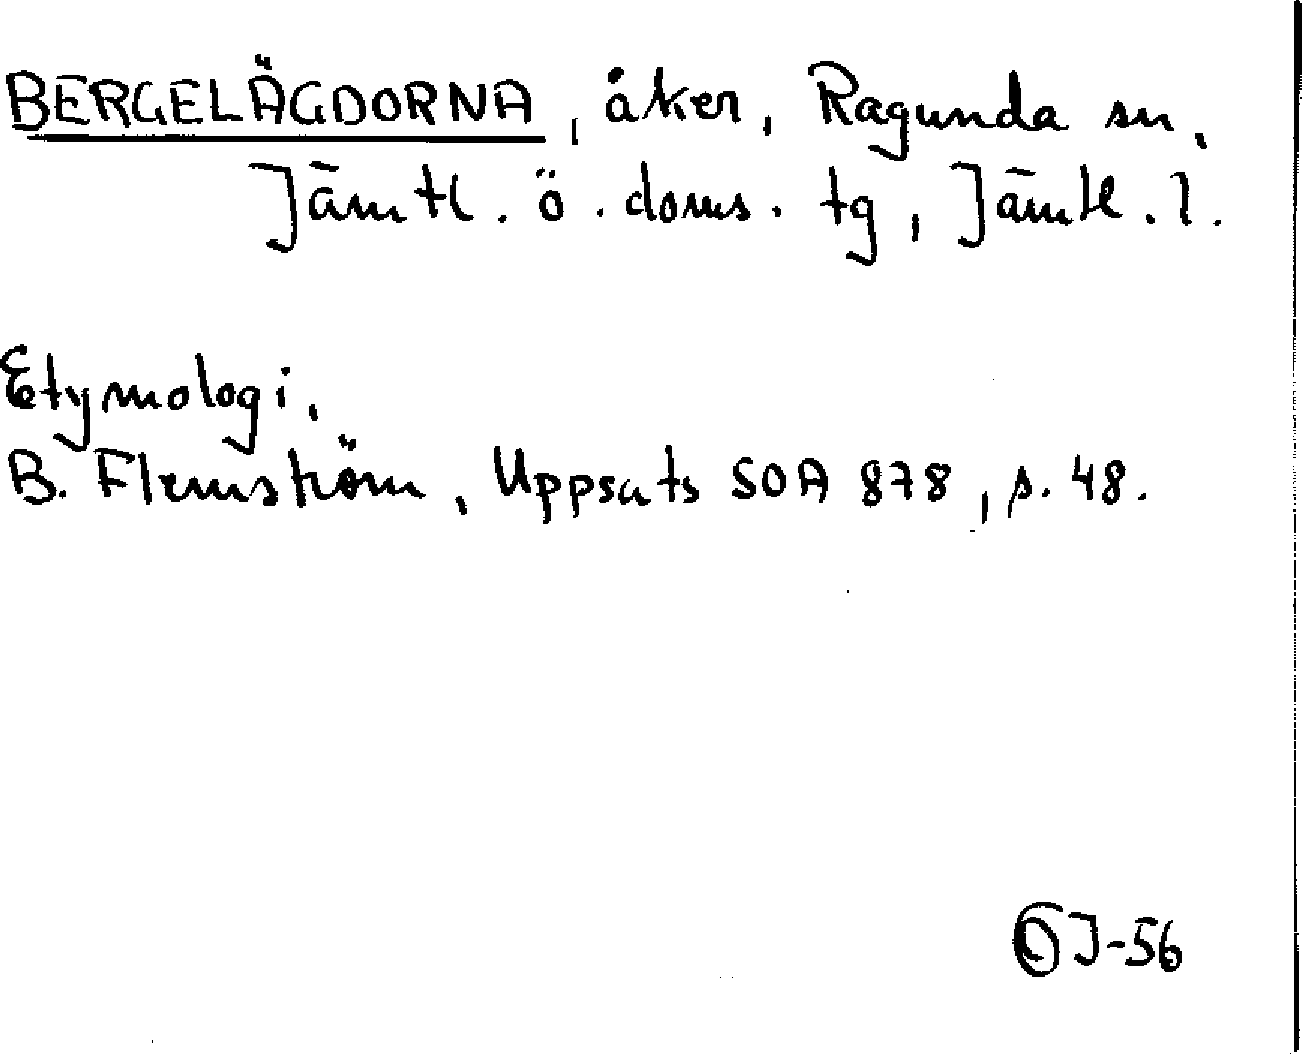 BERGELÄGDORNA, åker, Ragunda sn,
Jämtl. ö. doms. tg, Jämtl. l.
Etymologi.
B. Flemström, Uppsats SOA 878, s. 48.
J-56